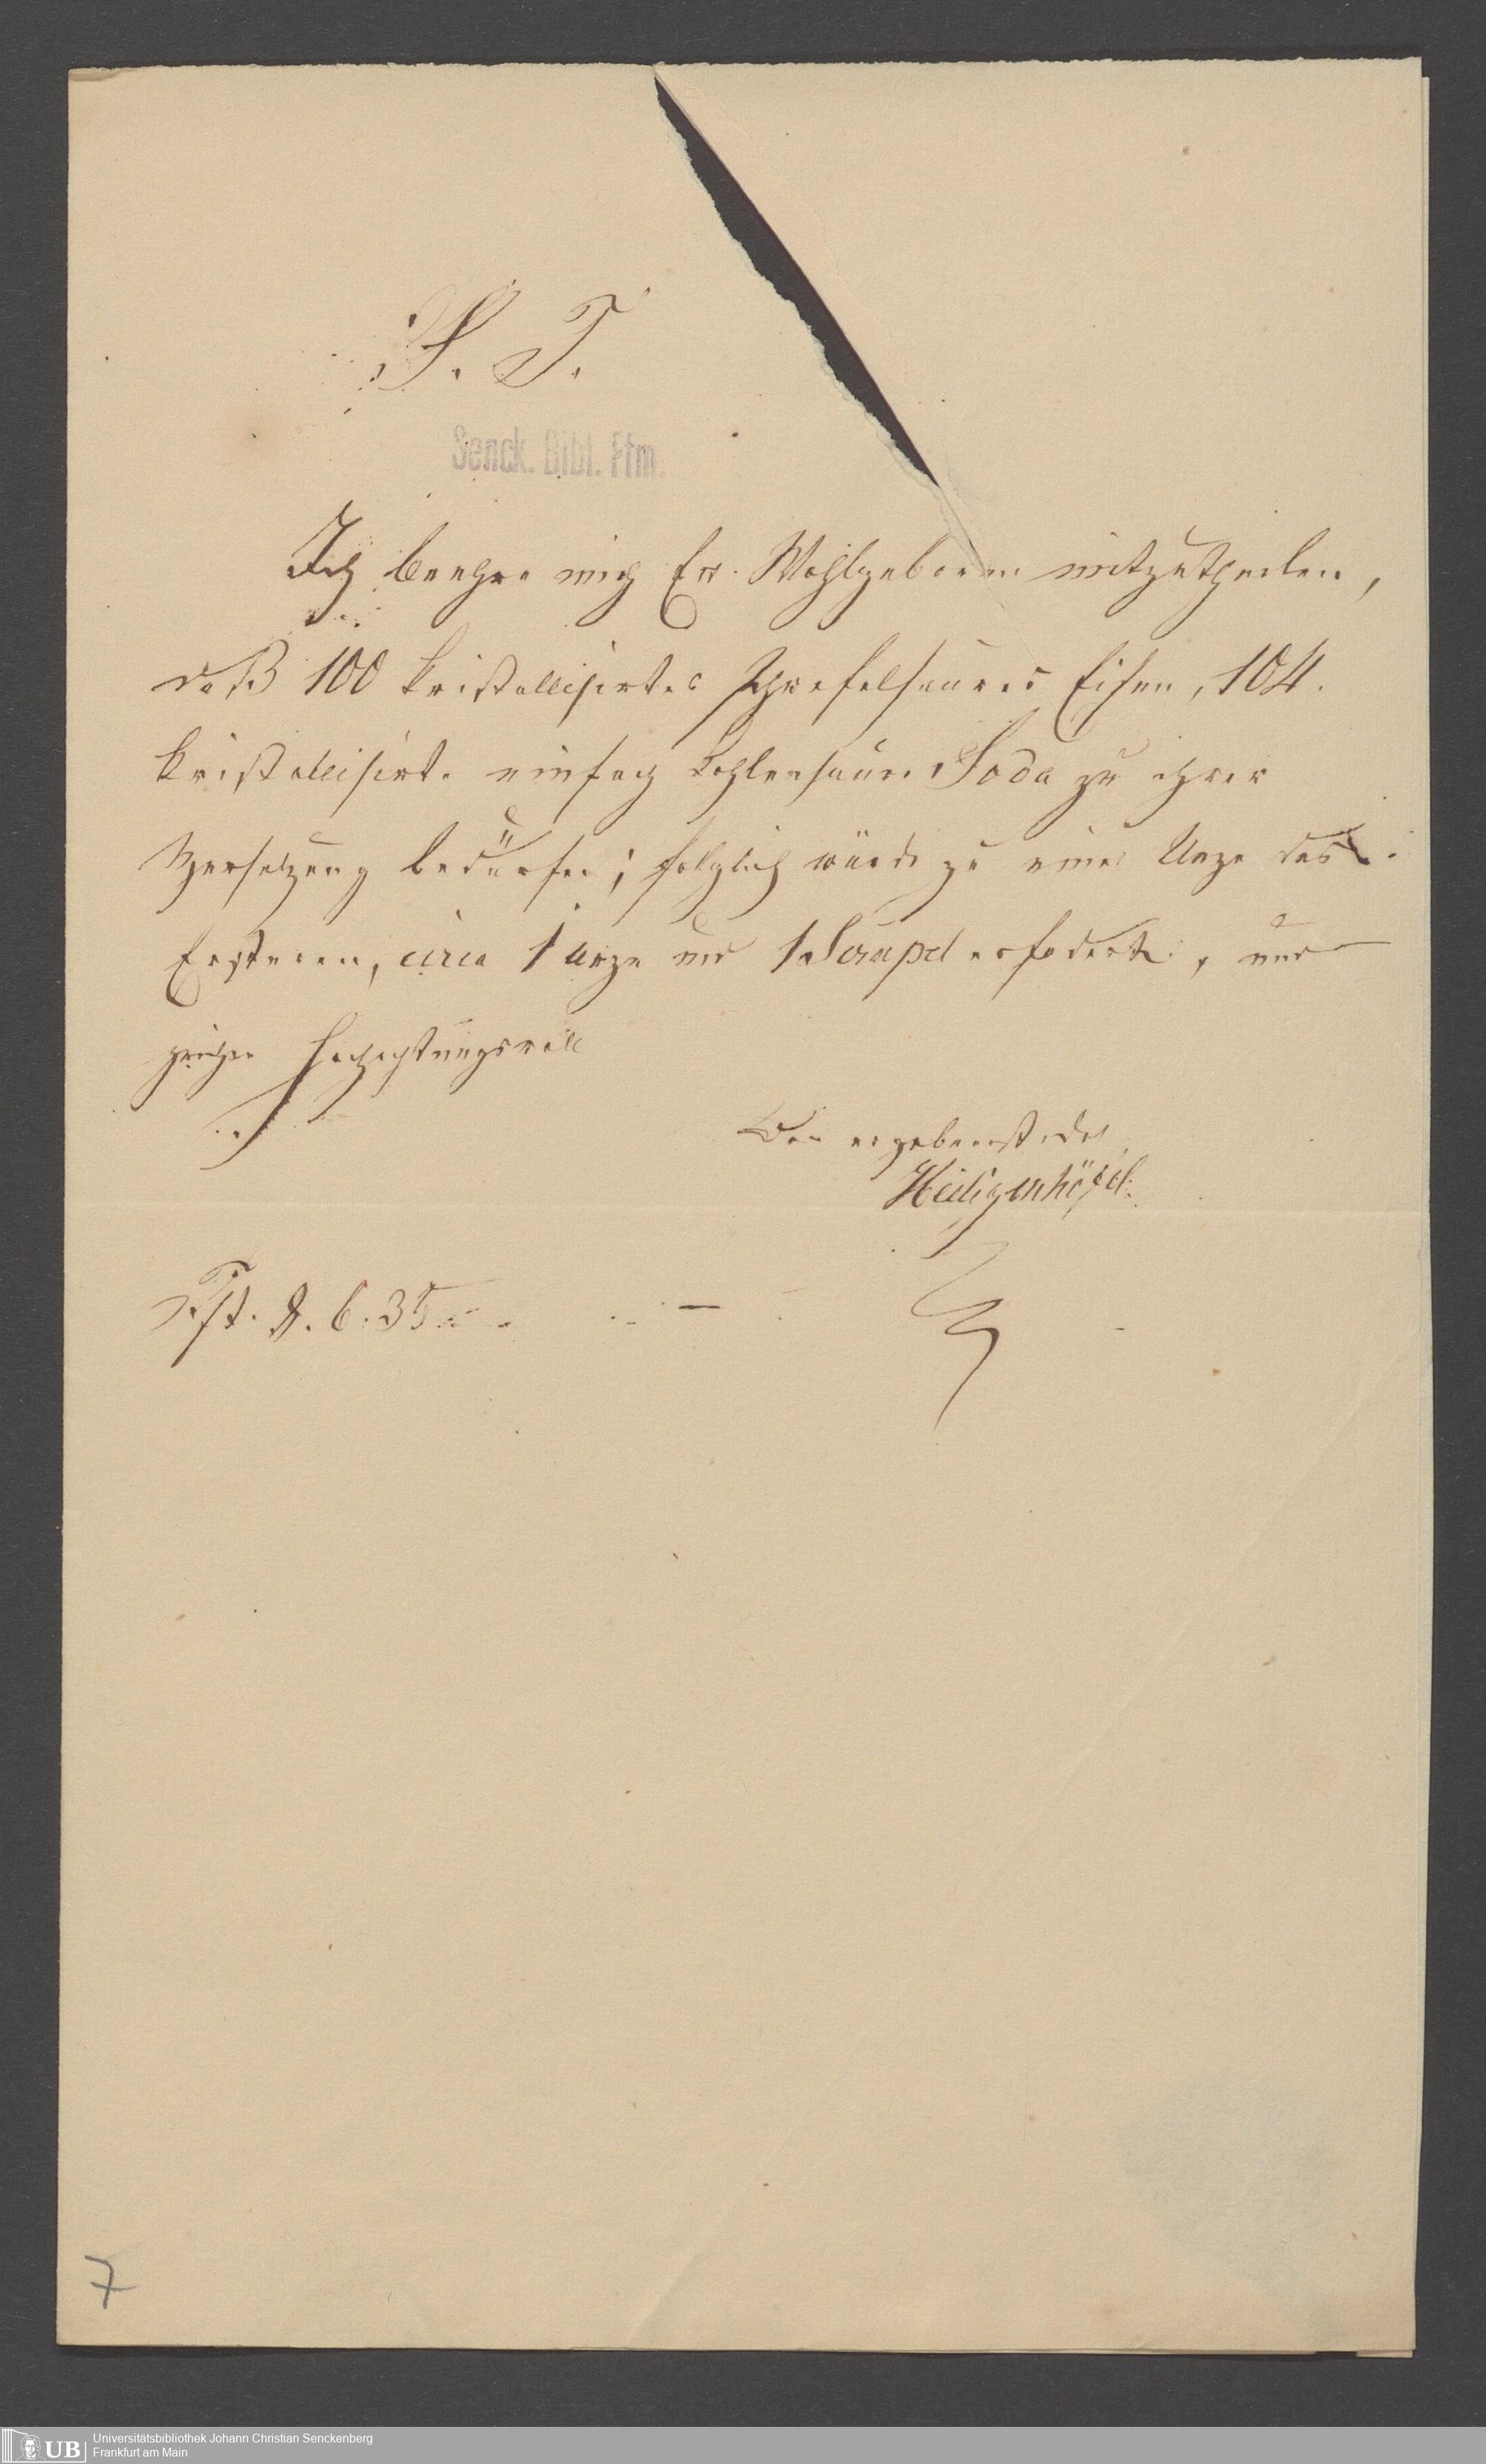 S. T.
Senck. Bibl. Ffm.
Ich beehre mich Ew. Wohlgeboren mitzutheilen,
daß 100 kristallisirtes schwefelsaures Eisen, 104.
kristallisirte einfach kohlensaure Soda zu ihrer
Zersetzung bedürfen; folglich würde zu einer Unze des
Ersteren, circa 1 Unze und 1 Scrupel erfodert, und
zeichne Hochachtungsvoll
Der ergebenste
Heiligenhöfel
8. 6. 35
7
UB
Universitätsbibliothek Johann Christian Senckenberg
Frankfurt am Main